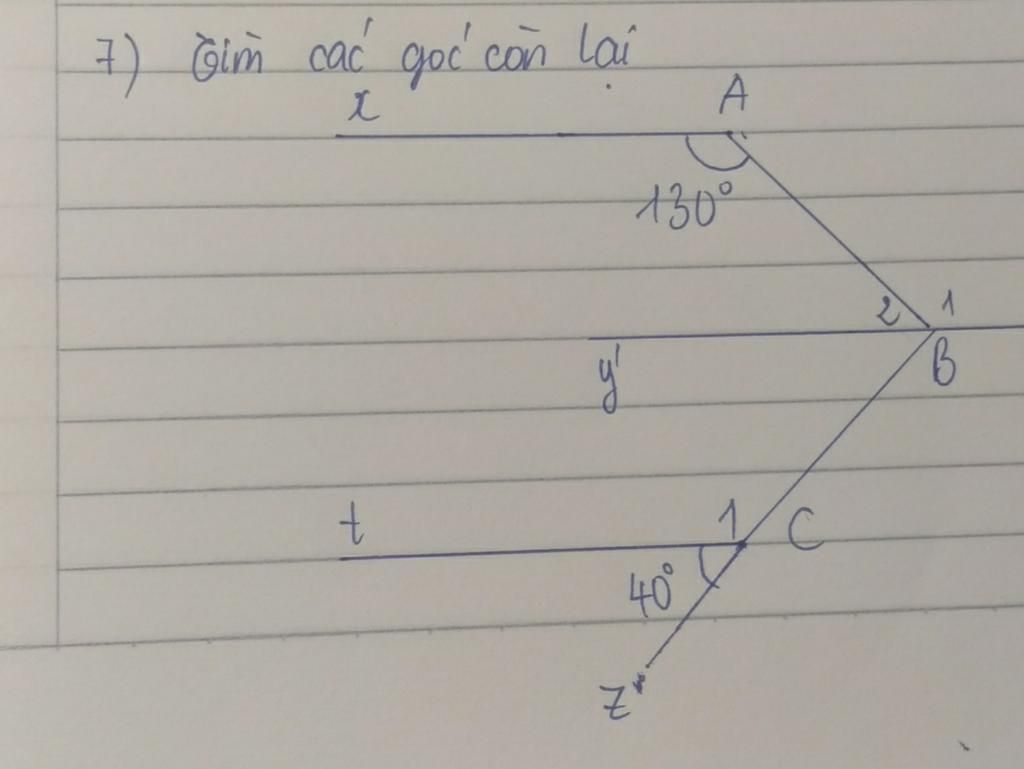 7) Tìm các góc còn lại
x A
130°
2 1
y B
t 1 C
40°
z